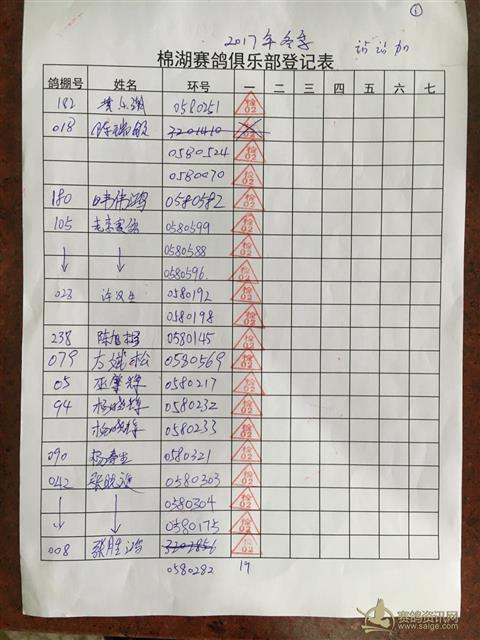 ①
2017年冬季
棉湖赛鸽俱乐部登记表
鸽棚号 姓名 环号 一 二 三 四 五 六 七
182 0580251 检02
018 陈瑞敏 3201410 检02
0580524 检02
0580070 检02
180 伟鸿 0580582 检02
105 0580599 检02
0580588 检02
0580596 检02
023 许汉生 0580192 检02
0580198 检02
238 陈旭 0580145 检02
079 方斌松 0580569 检02
05 辉 0580217 检02
94 杨晓辉 0580232 检02
杨晓辉 0580233 检02
090 杨春生 0580321 检02
042 张晓 0580303 检02
0580304 检02
0580175 检02
008 张胜鸿 3202856 检02
0580282 19
赛鸽资讯网
www.saige.com